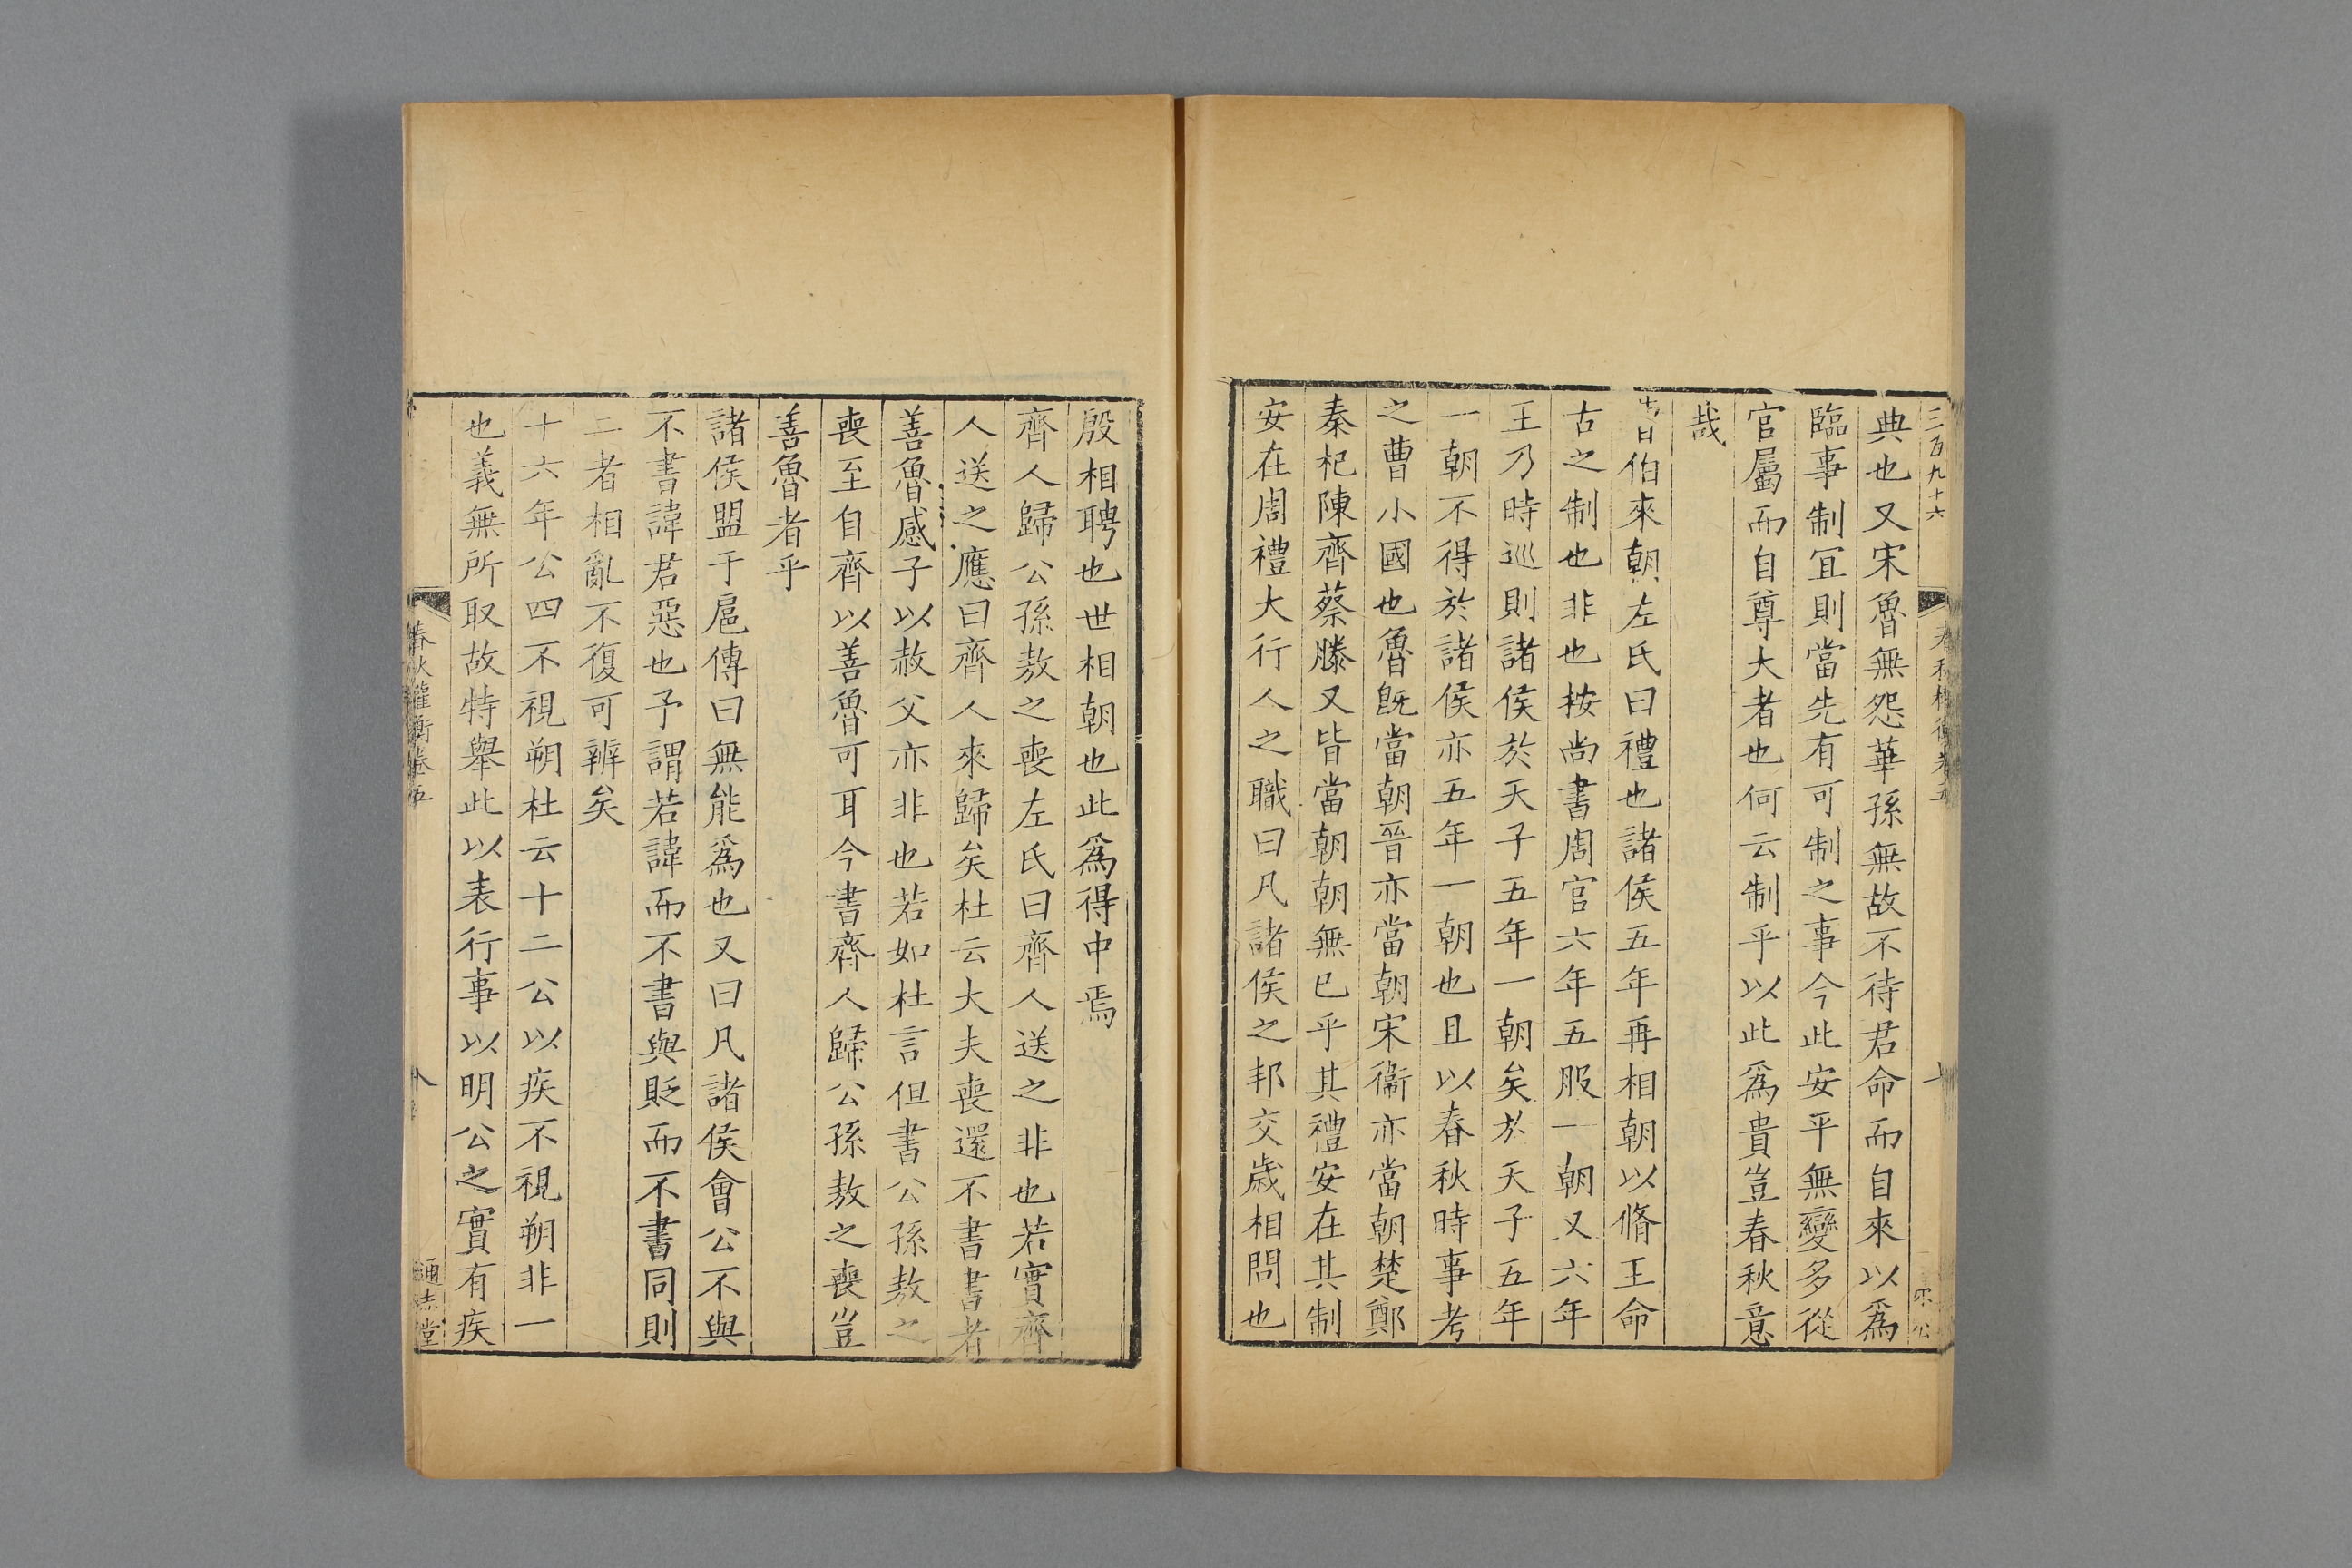 三百九十六
典也又宋魯無怨華孫無故不待君命而自來以爲
臨事制宜則當先有可制之事今此安平無變多從
官屬而自尊大者也何云制乎以此爲貴豈春秋意
哉
曹伯來朝左氏曰禮也諸侯五年再相朝以脩王命
古之制也非也按尚書周官六年五服一朝又六年
王乃時巡則諸侯於天子五年一朝矣於天子五年
一朝不得於諸侯亦五年一朝也且以春秋時事考
之曹小國也魯旣當朝晉亦當朝宋衞亦當朝楚鄭
秦杞陳齊蔡滕又皆當朝朝無已乎其禮安在其制
安在周禮大行人之職曰凡諸侯之邦交歲相問也
殷相聘也世相朝也此爲得中焉
齊人歸公孫敖之喪左氏曰齊人送之非也若實齊
人送之應曰齊人來歸矣杜云大夫喪還不書書者
善魯感子以赦父亦非也若如杜言但書公孫敖之
喪至自齊以善魯可耳今書齊人歸公孫敖之喪豈
善魯者乎
諸侯盟于扈傳曰無能爲也又曰凡諸侯會公不與
不書諱君惡也予謂若諱而不書與貶而不書同則
二者相亂不復可辨矣
十六年公四不視朔杜云十二公以疾不視朔非一
也義無所取故特舉此以表行事以明公之實有疾
春秋權衡卷五
通志堂